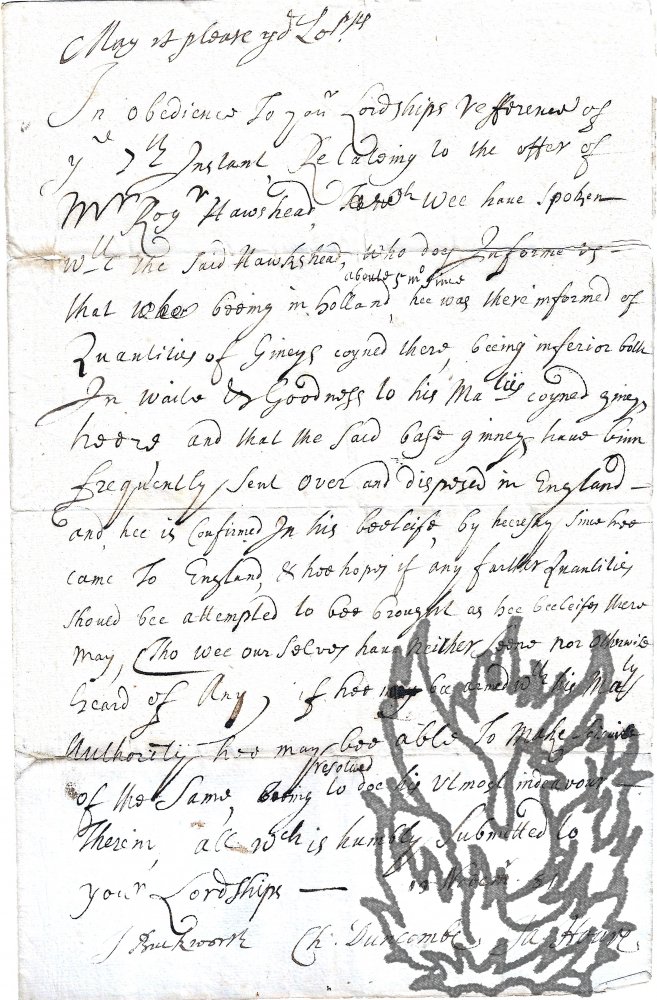 May it please yor Lopps
In obedience To your Lordships refference of
ye 7th Instant, Relateing to the offer of
Mr Rogr Hawshead, wee have spoken
wth the said Hawkshead, who does Informe us
that hee beeing in holland aboute 5 mo since, hee was there informed of
Quantities of Gineys coyned there, beeing inferior both
In waite & Goodness to his Maties coyned gineys
heere and that the said base ginneys have binn
frequently sent over and disposed in England
and hee is Confirmed In his beeleife, by heeresay since hee
came To England, & hee hopes if any further Quantities
should bee attempted to bee brought as hee beeleifes there
may, (tho wee our selves have neither seene nor otherwise
heard of Any, if hee may bee armed wth his Matys
Authority hee may bee able To make
of the same, being resolved to doe his utmost indeavour
Therein, all wch is humbly submitted to
your Lordships
J Buckworth Ch: Duncombe Ja Hoare